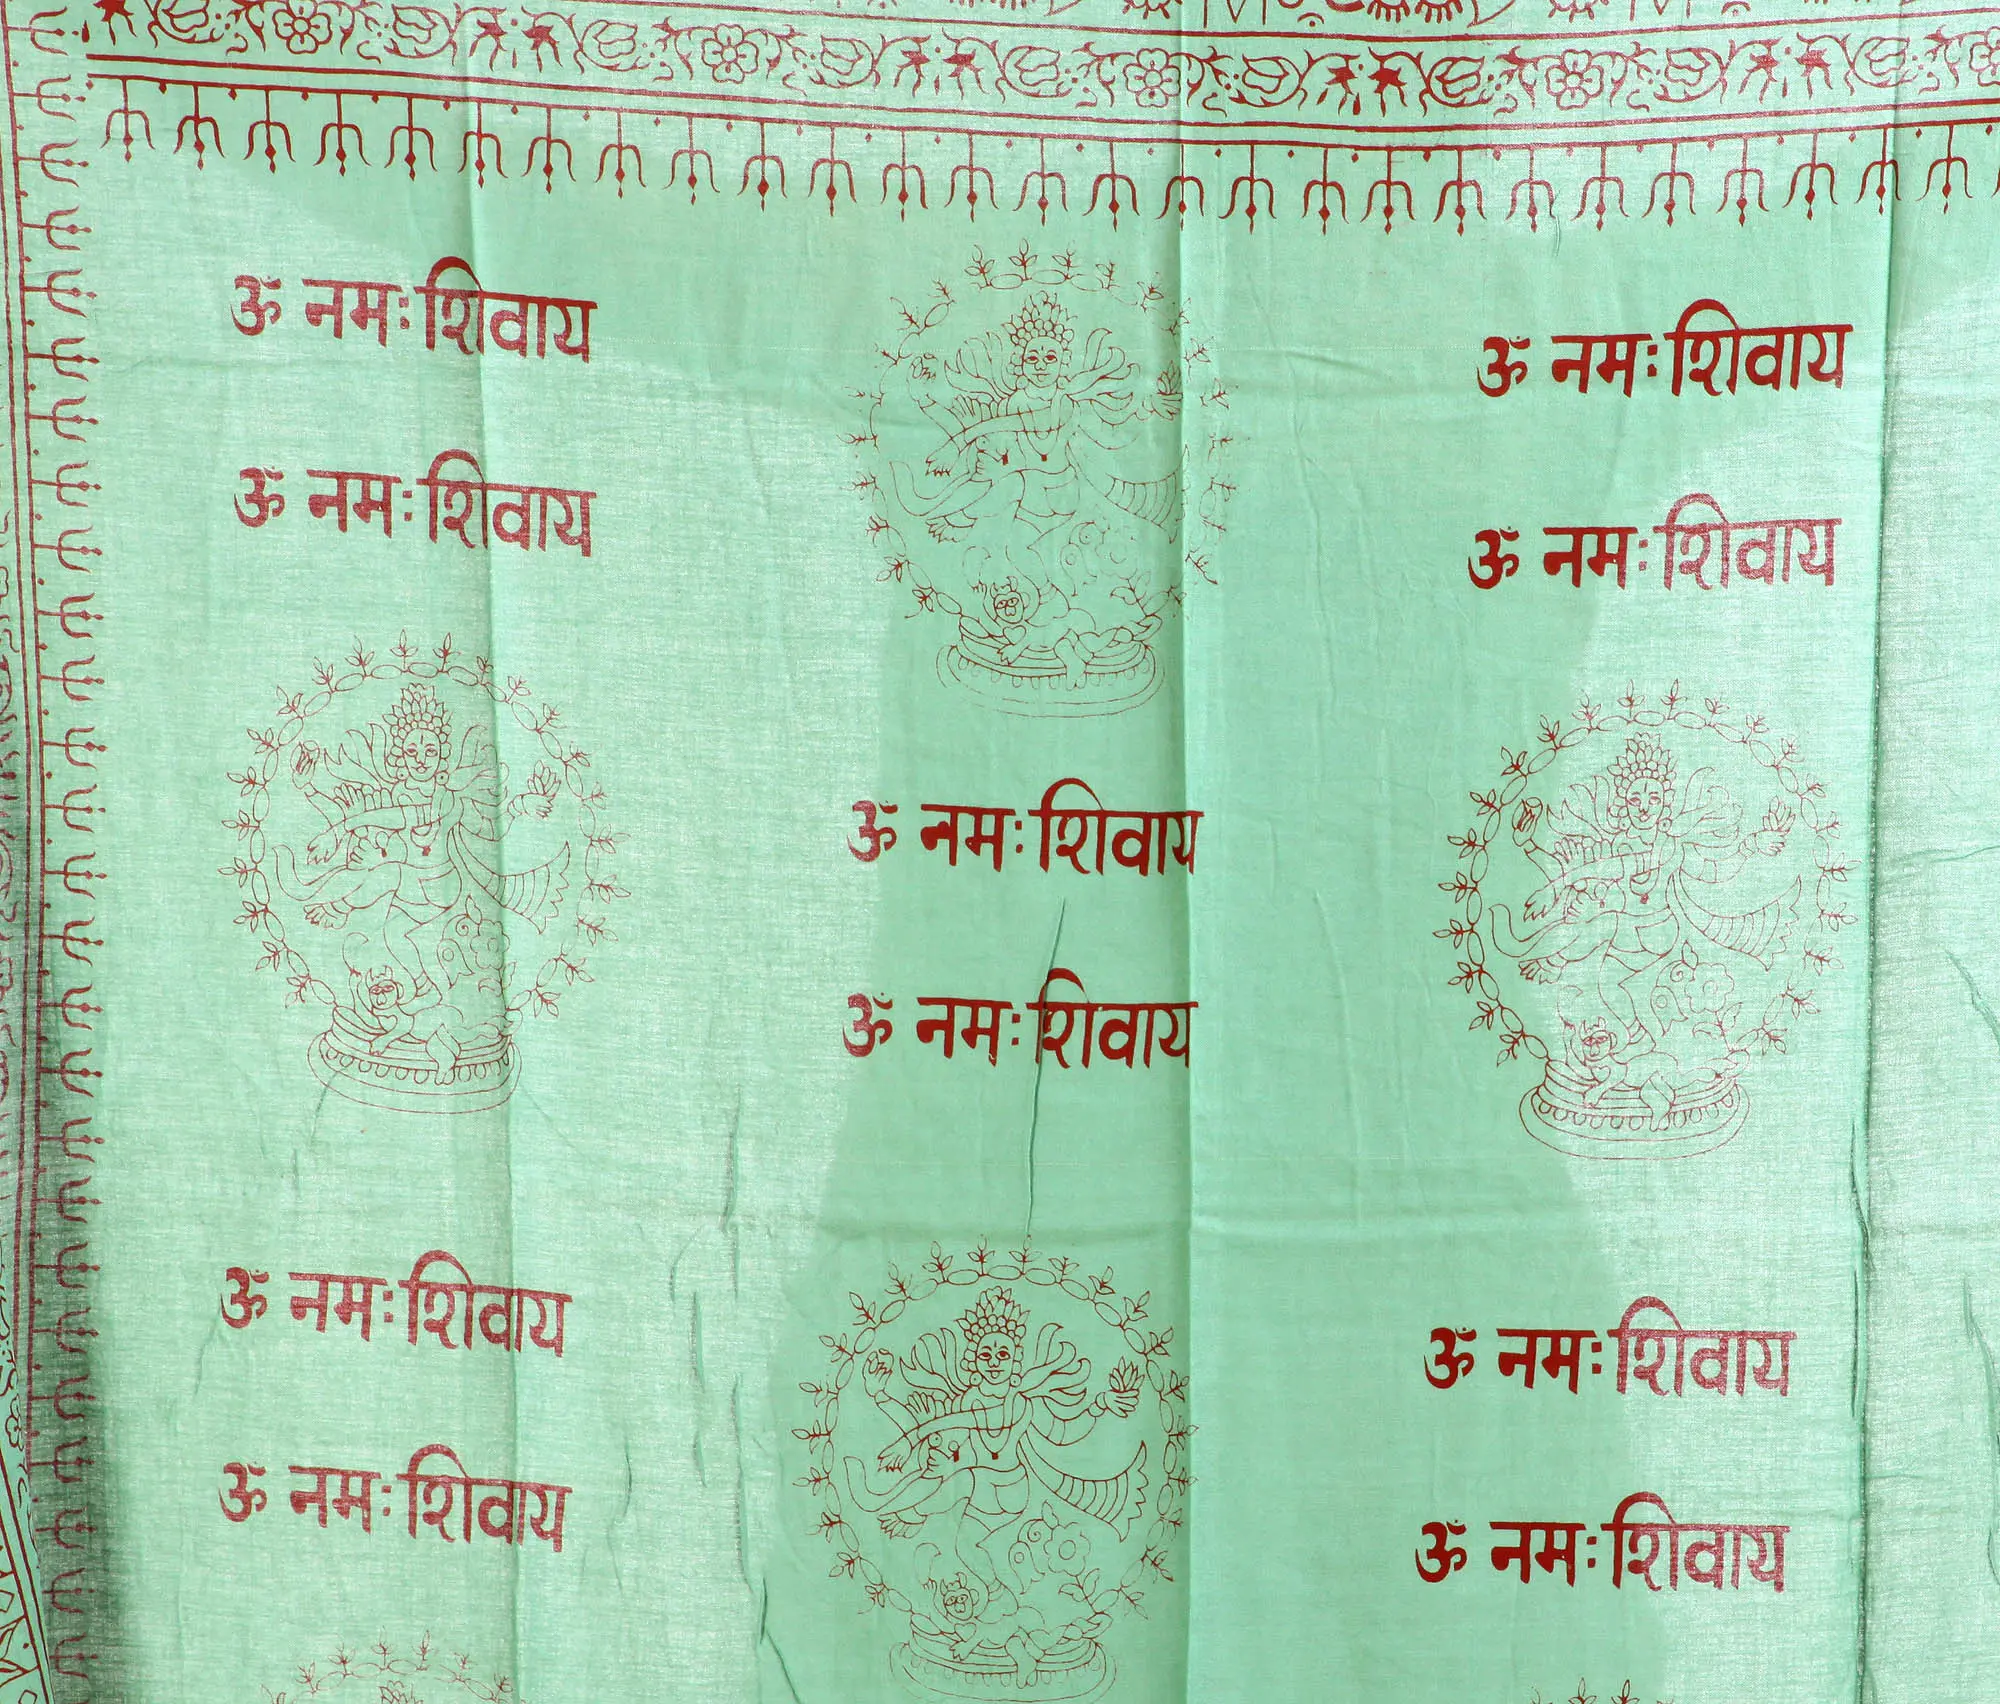 ॐ नमः शिवाय
ॐ नमः शिवाय
ॐ नमः शिवाय
ॐ नमः शिवाय
ॐ नमः शिवाय
ॐ नमः शिवाय
ॐ नमः शिवाय
ॐ नमः शिवाय
ॐ नमः शिवाय
ॐ नमः शिवाय